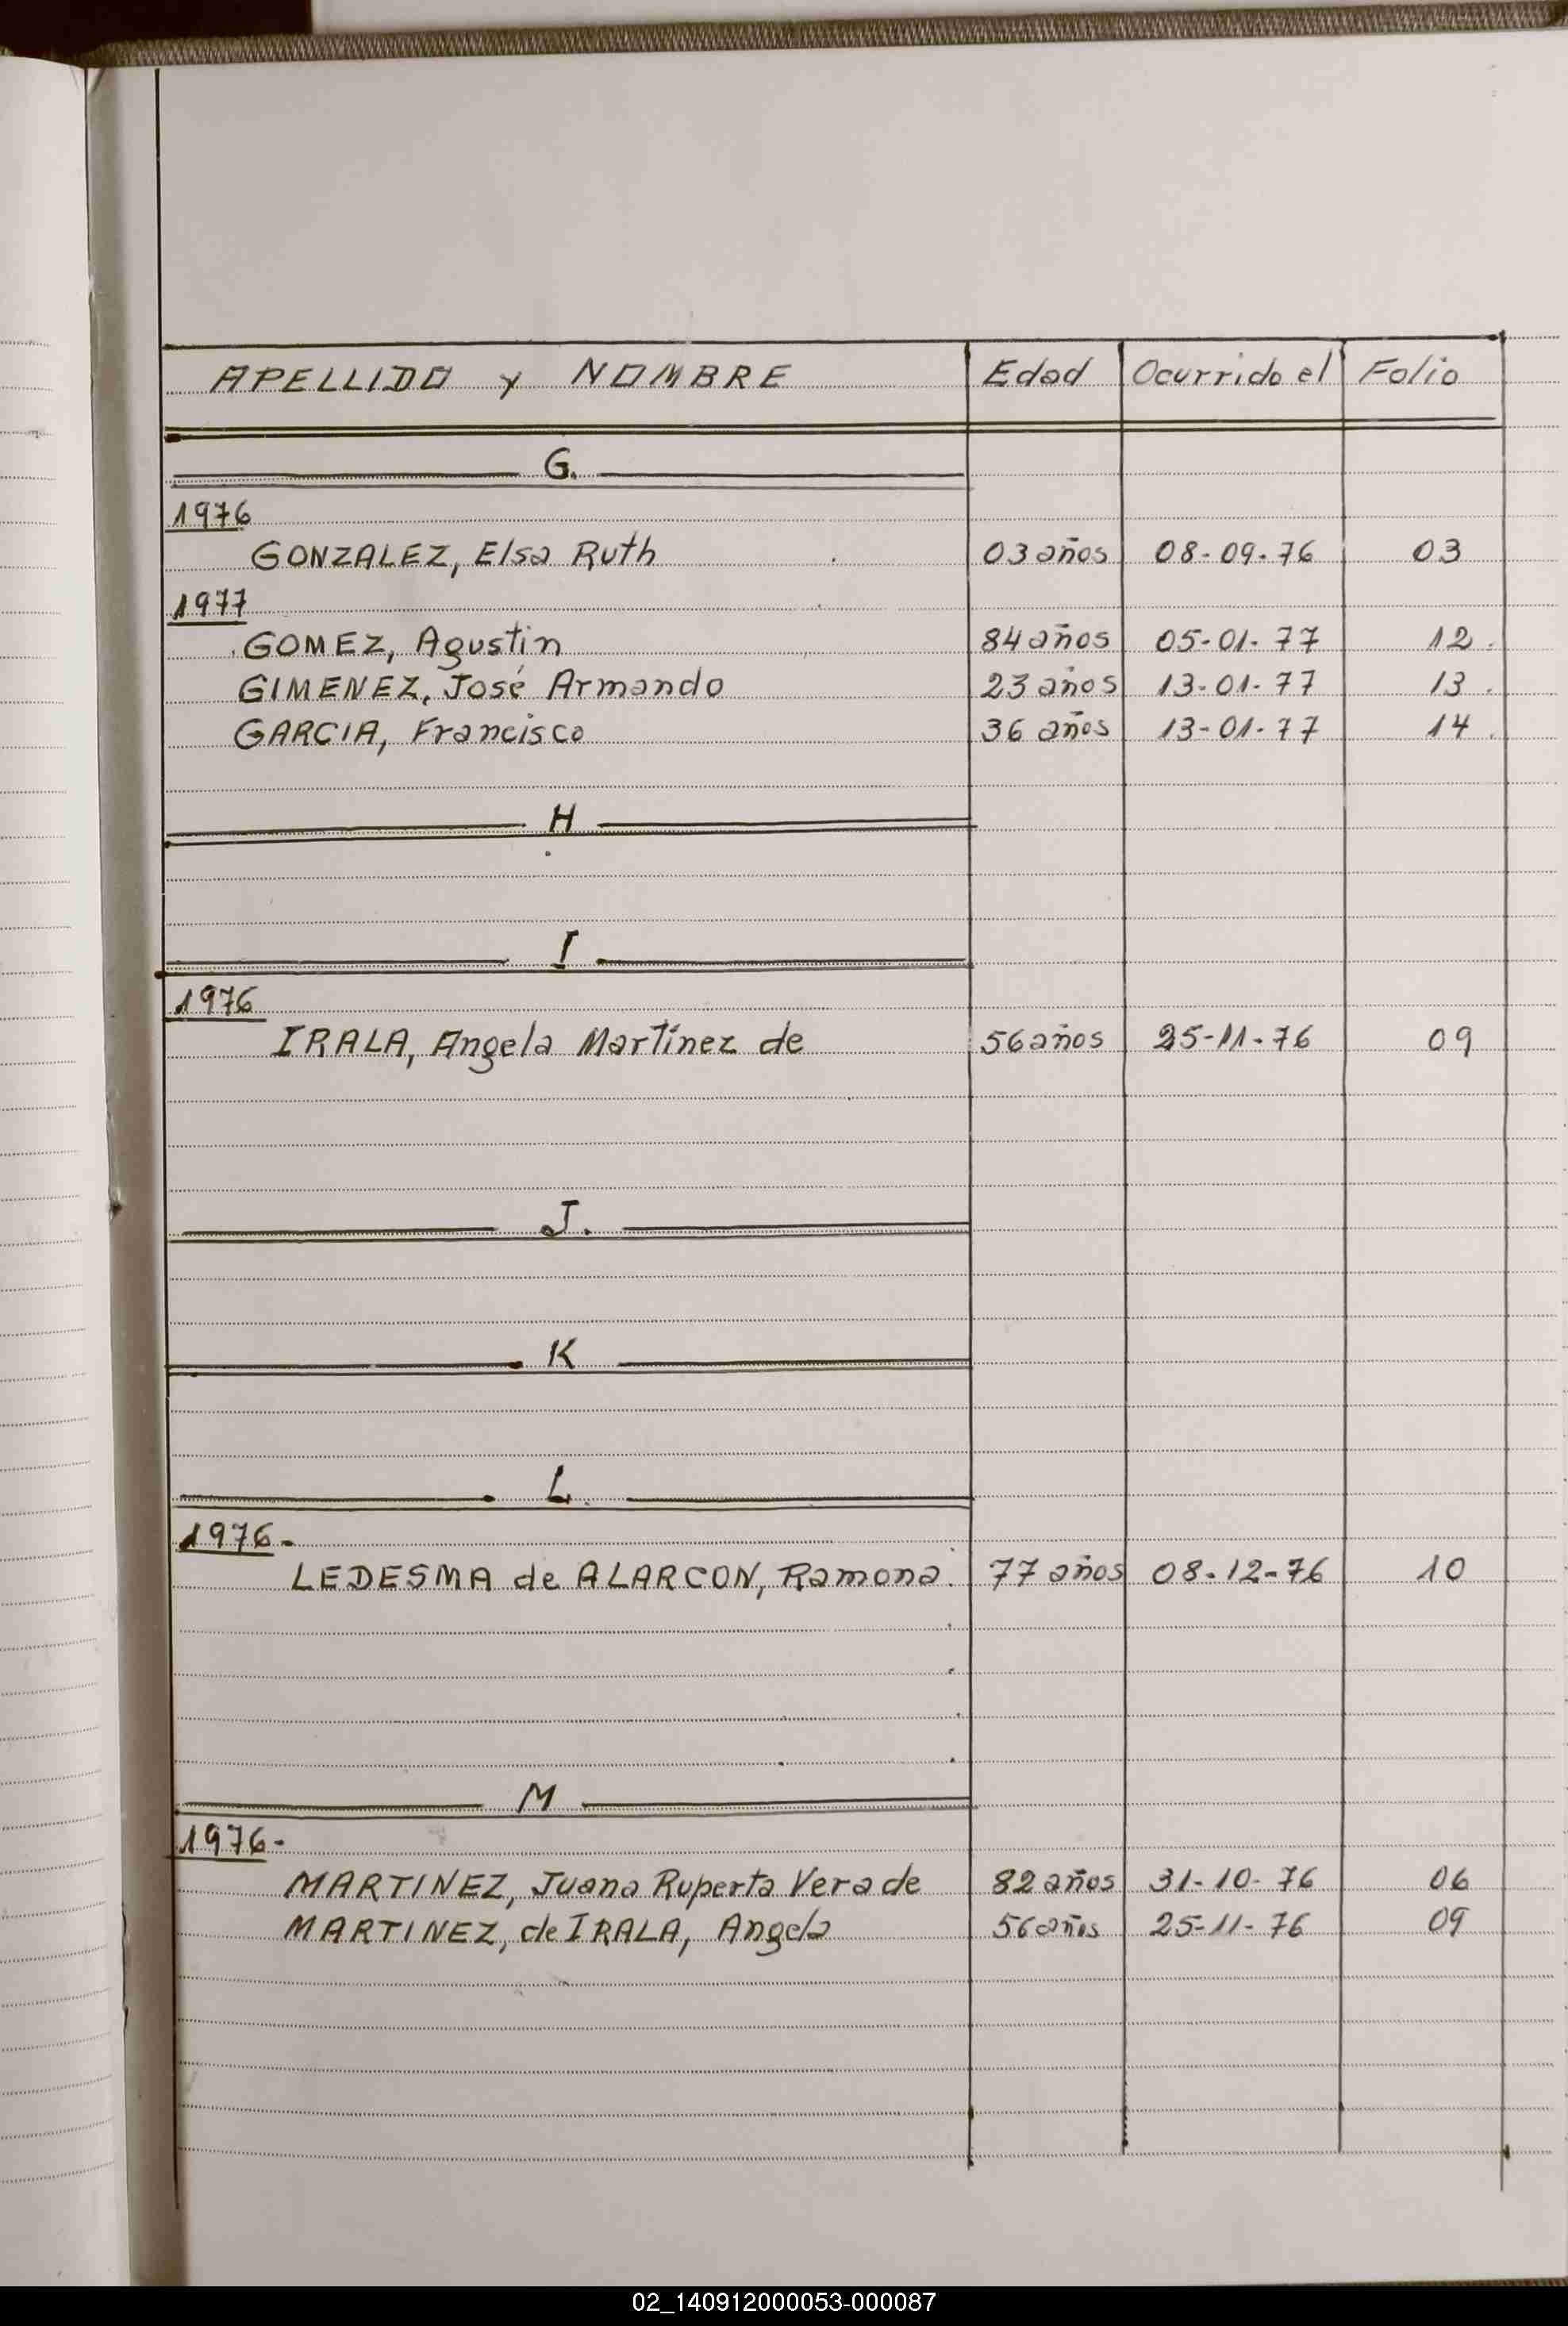 APELLIDO y NOMBRE Edad Ocurrido el Folio
G.
1976
GONZALEZ, Elsa Ruth 03 años 08-09-76 03
1977
GOMEZ, Agustín 84 años 05-01-77 12
GIMENEZ, José Armando 23 años 13-01-77 13
GARCIA, Francisco 36 años 13-01-77 14
H
I
1976
IRALA, Angela Martínez de 56 años 25-11-76 09
J.
K
L.
1976-
LEDESMA de ALARCON, Ramona. 77 años 08-12-76 10
M
1976-
MARTINEZ, Juana Ruperta Vera de 82 años 31-10-76 06
MARTINEZ, de IRALA, Angela 56 años 25-11-76 09
02_140912000053-000087